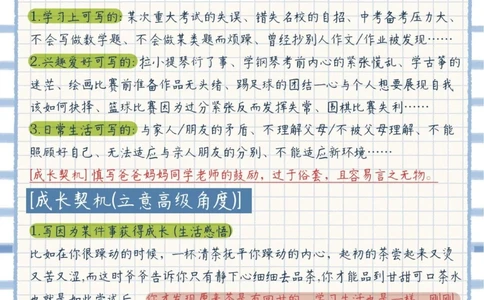 1.学习上可写的:某次重大考试的失误、错失名校的自招、中考备考压力大、
不会写做数学题、不会做某类题而烦躁、曾经抄别人作文/作业被发现……
2.兴趣爱好可写的:拉小提琴行了事、学钢琴考前内心的紧张慌乱、学古筝的
迷茫、绘画比赛前准备作品无头绪、踢足球的团结一心与个人想要展现自我
该如何抉择、篮球比赛因为过分紧张反而发挥失常、围棋比赛失利……
3.日常生活可写的:与家人/朋友的矛盾、不理解父母/不被父母理解、不能
照顾好自己、无法适应与亲人朋友的分别、不能适应新环境……
[成长契机]慎写爸爸妈妈同学老师的鼓励,过于俗套,且容易言之无物。
[成长契机(立意高级角度)]
1.写因为某件事获得成长(生活感悟)
比如在你很躁动的时候,一杯清茶抚平你躁动的内心,起初的茶尝起来又烫
又苦又涩,而这时爷爷告诉你只有静下心细细去品茶,你才能品到甘甜可口茶水